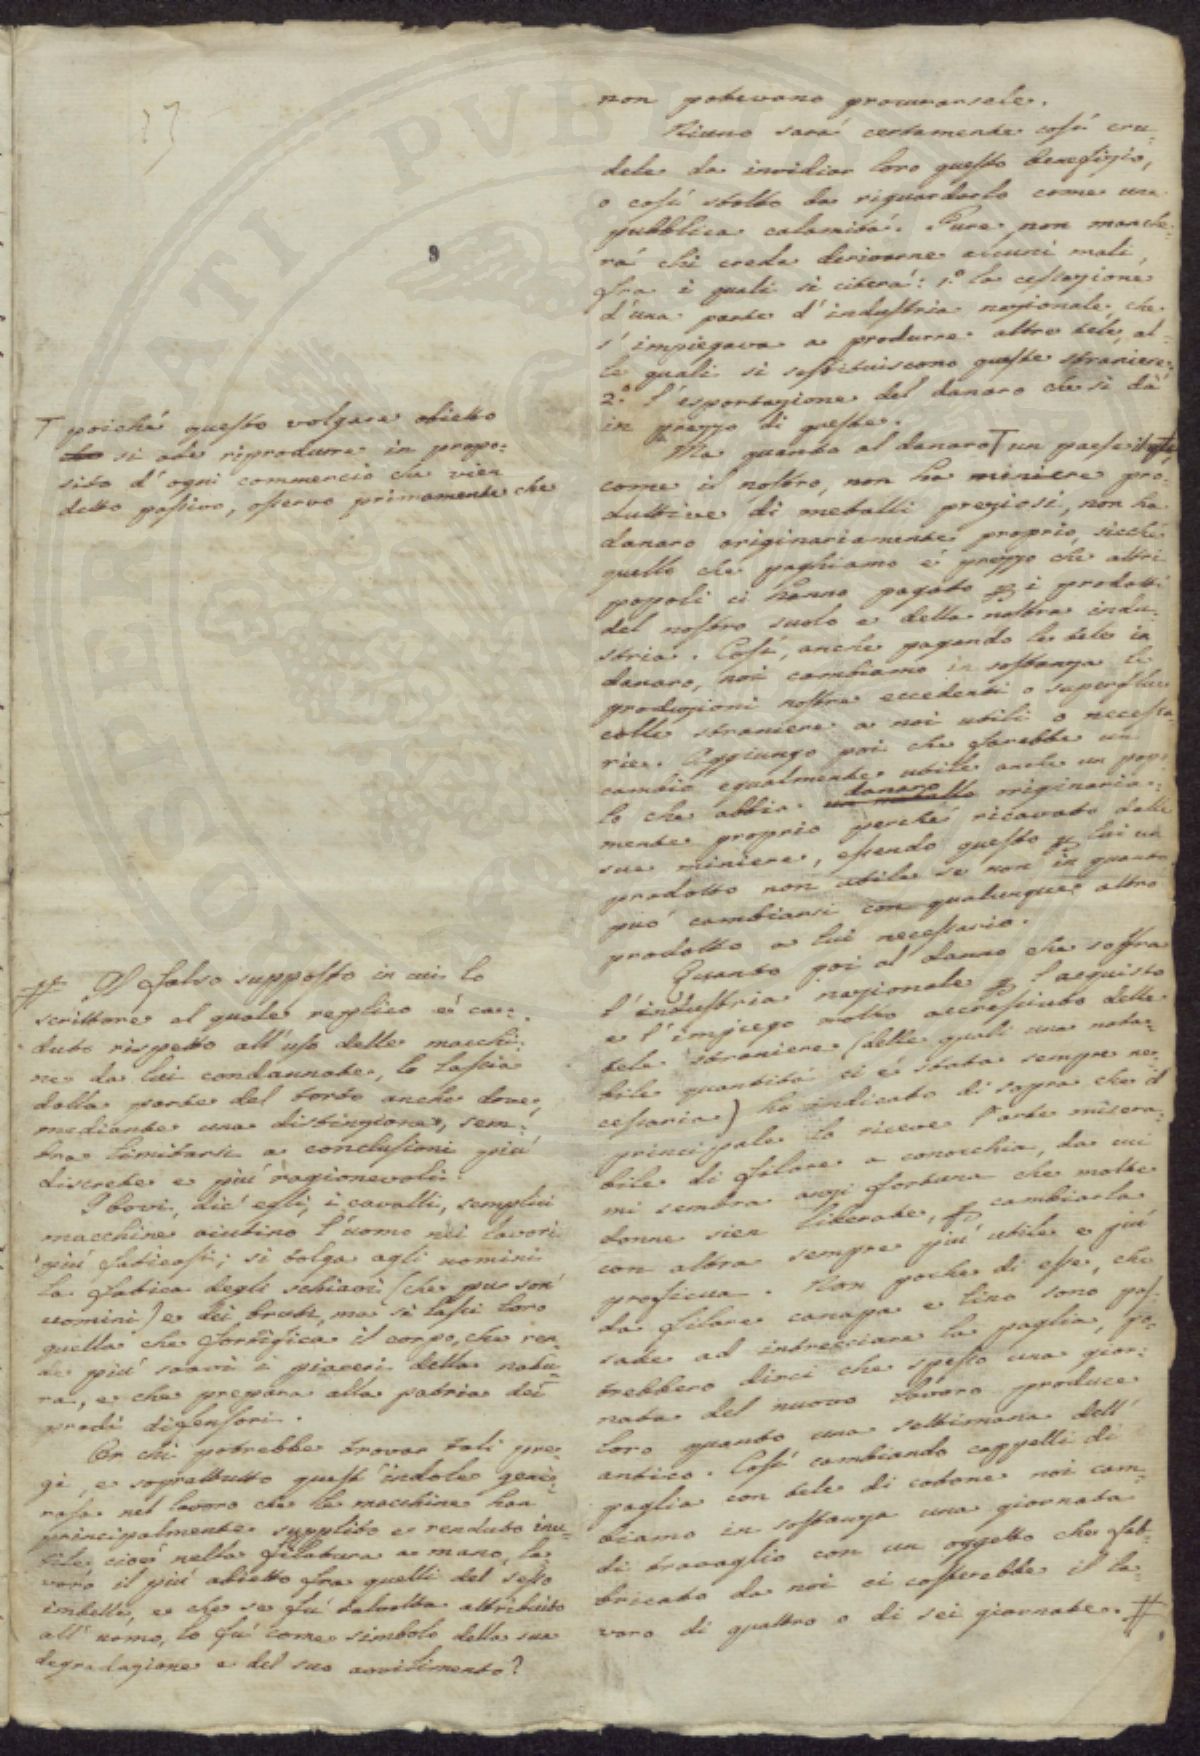 non potevano procurarsele.
Niuno sarà certamente così cru-
dele da invidiar loro questo benefizio,
o così stolto da riguardarlo come una
pubblica calamità. Pure non manche-
rà chi creda derivarne alcuni mali,
fra i quali si citerà: 1.° la cessazione
d'una parte d'industria nazionale, che
s'impiegava a produrre altre tele, al-
le quali si sostituiscono queste straniere:
2.° l'esportazione del danaro che si dà
in prezzo di queste.
Ma quanto al danaro T un paese il quale,
come il nostro, non ha miniere pro-
duttive di metalli preziosi, non ha
danaro originariamente proprio, sicché
quello che paghiamo è prezzo che altri
popoli ci hanno pagato p i prodotti
del nostro suolo e della nostra indu-
stria. Così, anche pagando le tele in
danaro, noi cambiamo in sostanza le
produzioni nostre eccedenti o superflue
colle straniere a noi utili o necessa-
rie. Aggiungo poi che sarebbe un
cambio egualmente utile anche un popo-
lo che abbia un metallo danaro originaria-
mente proprio perché ricavato dalle
sue miniere, essendo questo p lui un
prodotto non utile se non in quanto
può cambiarsi con qualunque altro
prodotto a lui necessario.
Quanto poi al danno che soffra
l'industria nazionale p l'acquisto
e l'impiego molto accresciuto delle
tele straniere (delle quali una nota-
bile quantità ci è stata sempre ne-
cessaria) ho indicato di sopra che il
principale lo riceve l'arte misera-
bile di filare a conocchia, da cui
mi sembra anzi fortuna che molte
donne sien liberate, p cambiarla
con altra sempre più utile e più
proficua. Non poche di esse, che
da filare canapa e lino sono pas-
sate ad intrecciare la paglia, po-
trebbero dirci che spesso una gior-
nata del nuovo lavoro produce
loro quanto una settimana dell'
antico. Così cambiando cappelli di
paglia con tele di cotone noi cam-
biamo in sostanza una giornata
di travaglio con un oggetto che fab-
bricato da noi ci costerebbe il la-
voro di quattro o di sei giornate. #
9
T poiché questo volgare obietto
si ode riprodurre in propo-
sito d'ogni commercio che vien
detto passivo, osservo primamente che
# Il falso supposto in cui lo
scrittore al quale replico è ca-
duto rispetto all'uso delle macchi-
ne da lui condannate, lo lascia
dalla parte del torto anche dove,
mediante una distinzione, sem-
bra limitarsi a conclusioni più
discrete e più ragionevoli.
I bovi, dic'egli, i cavalli, semplici
macchine aiutino l'uomo nei lavori
più faticosi; si tolga agli uomini
la fatica degli schiavi (che pur son'
uomini) e dei bruti, ma si lasci loro
quella che fortifica il corpo, che ren-
de più soavi i piaceri della natu-
ra, e che prepara alla patria dei
prodi difensori.
Or chi potrebbe trovar tali pre-
gi, e soprattutto quest'indole gene-
rosa nel lavoro che le macchine han
principalmente supplito e renduto inu-
tile, cioè nella filatura a mano, la-
voro il più abietto fra quelli del sesso
imbelle, e che se fu talvolta attribuito
all'uomo, lo fu come simbolo della sua
degradazione e del suo avvilimento?